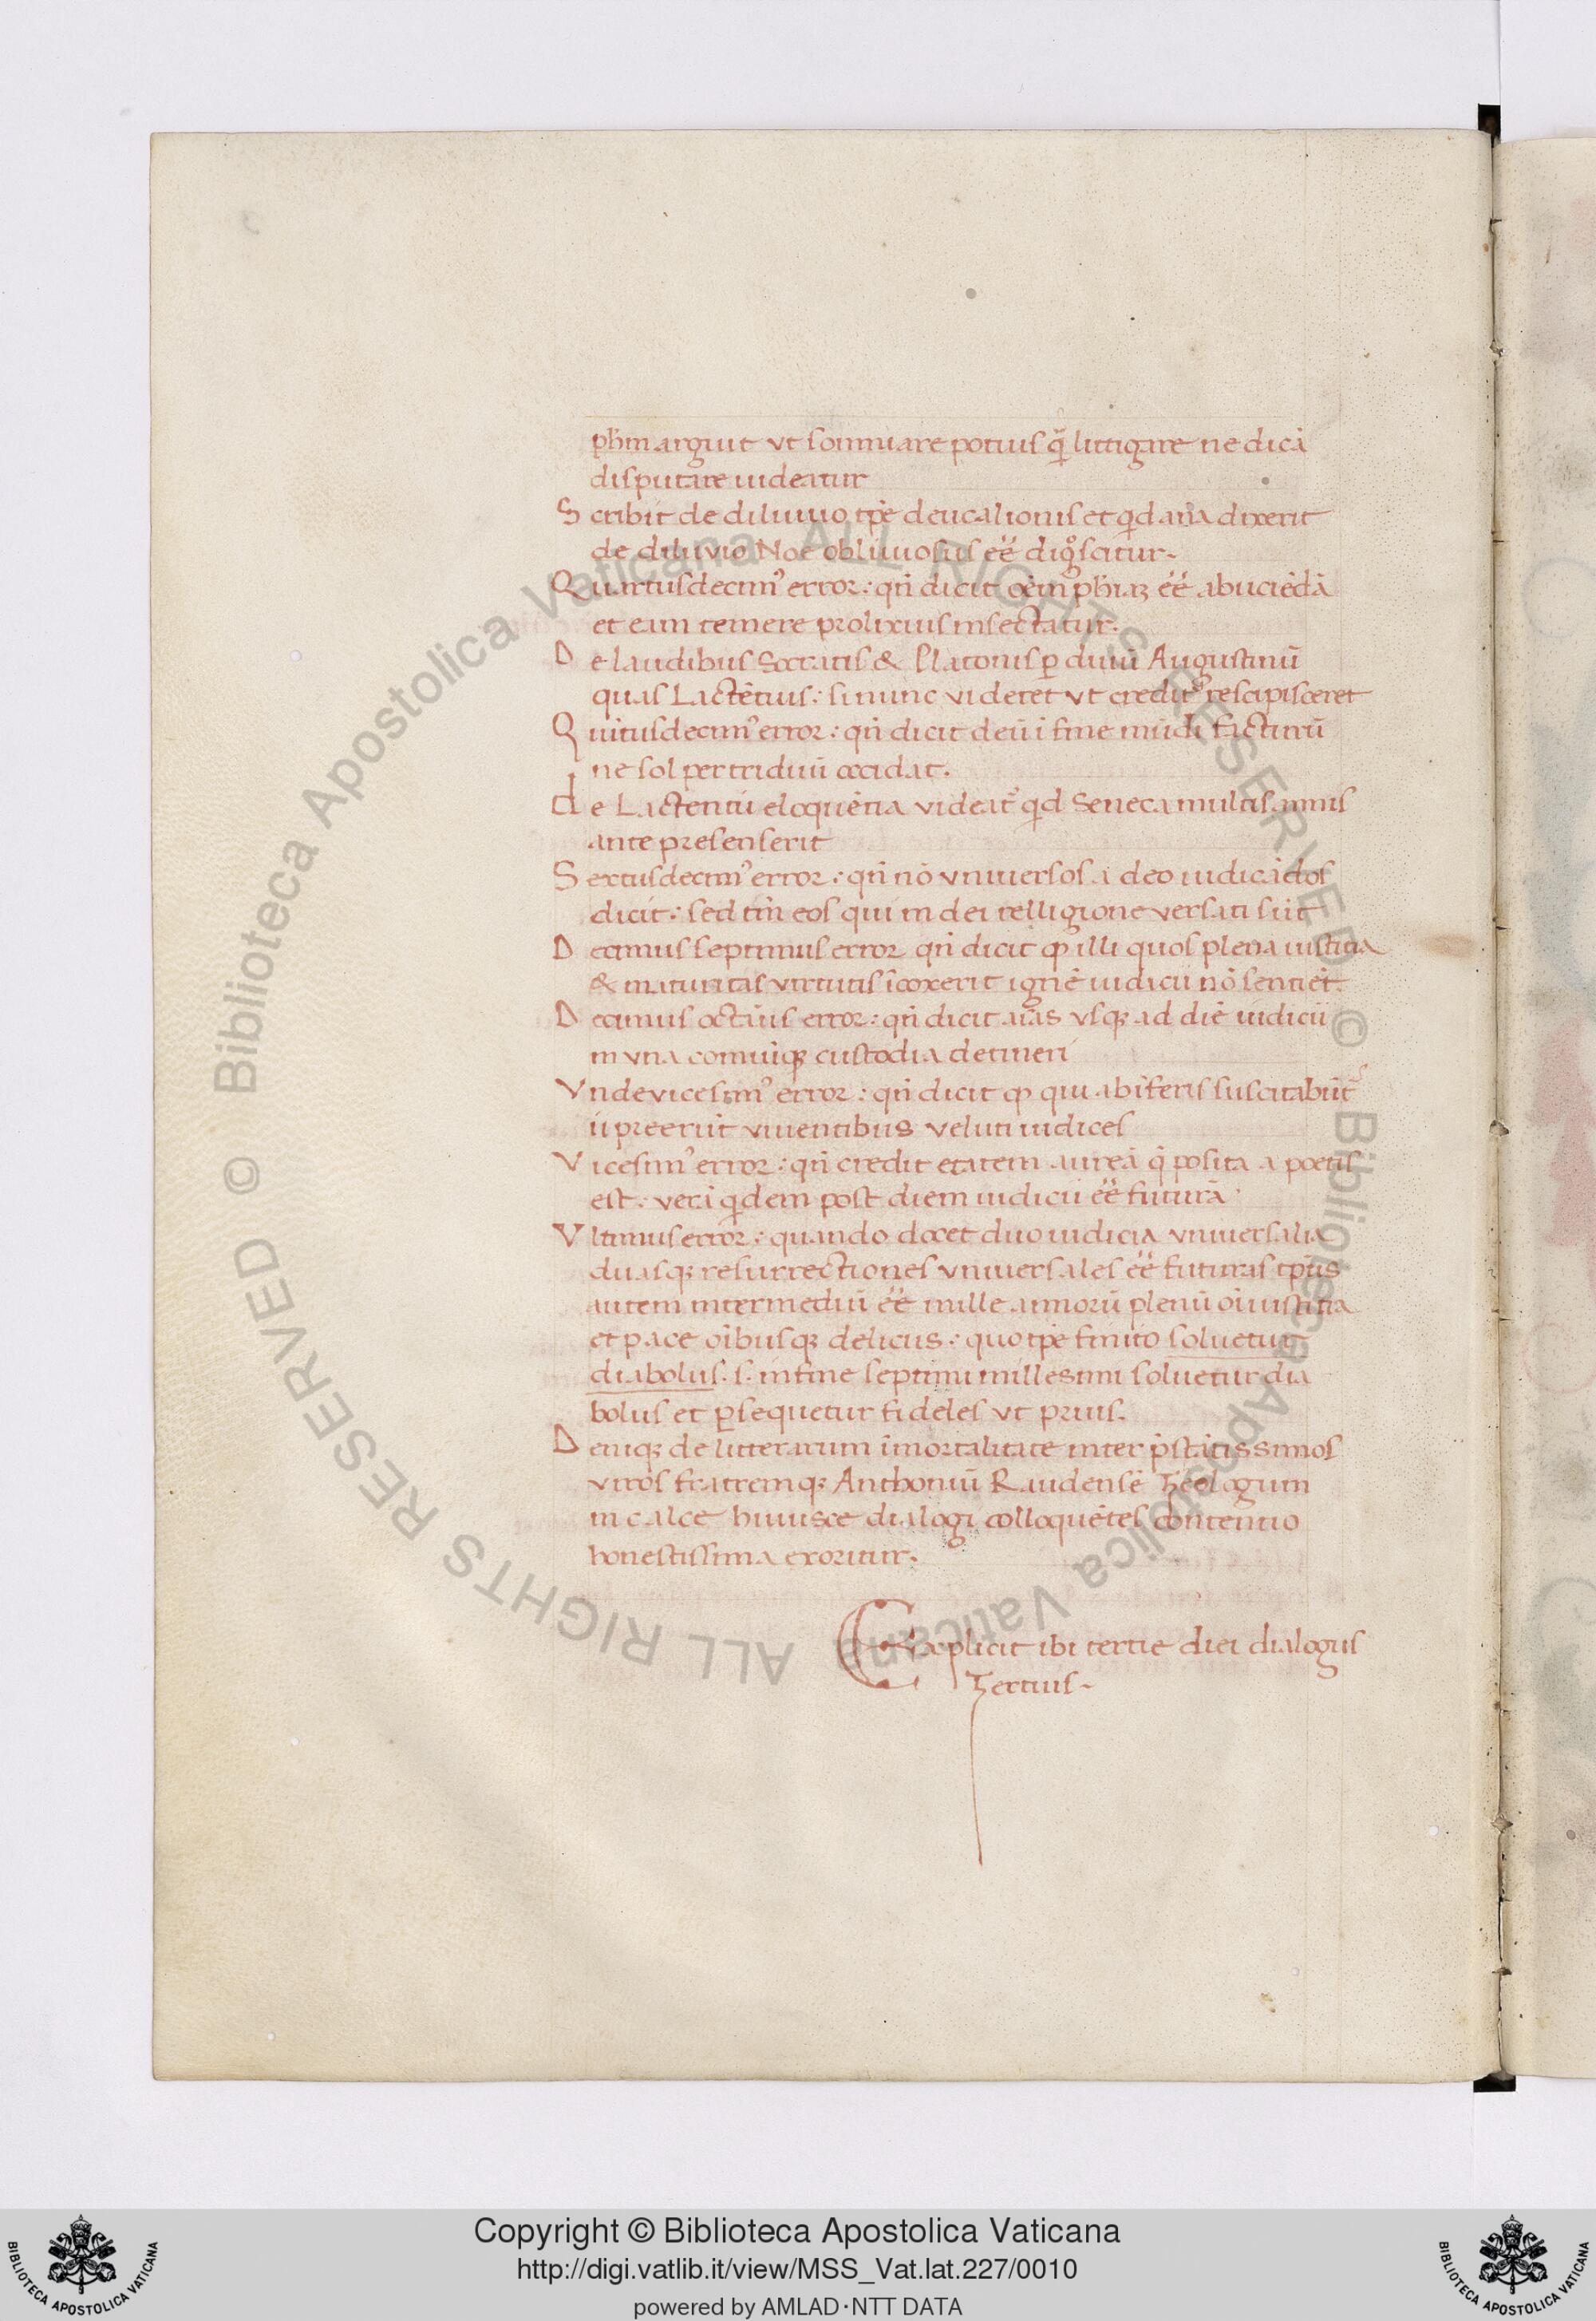 phm arguit vt somniare potius q̃ littigare ne dicã
disputare uideatur
Scribit de diluuio tpẽ deucalionis et qd aña dixerit
de diluvio Noe obliuiosus eẽ digͦscitur.
Quartusdecim9 error: qñ dicit oẽm phiaꝫ eẽ abiiciẽdã
et eam temere prolixius insectatur.
De laudibus Socratis & Platonis ꝑ diuũ Augustinũ
quas Lactẽtius: si nunc videret vt credit᷑ rescipisceret
Quĩtusdecim9 error: qñ dicit deũ ĩ fine mũdi facturũ
ne sol per triduũ occidat.
de Lactentii eloquẽtia videat᷑ qd Seneca multis annis
ante presenserit
Sextusdecim9 error: qñ nõ vniuersos a deo iudicãdos
dicit: sed tm̃ eos qui in dei relligione versati sũt
Decimus septimus error qñ dicit ꝙ illi quos plena iusticia
& maturitas virtutis ĩcoxerit ignẽ iudicii nõ sentiẽt.
Decimus octãus error: qñ dicit aĩas vsqꝫ ad diẽ iudicii
in vna comuiqꝫ custodia detineri
Vndevicesim9 error: qñ dicit ꝙ qui ab ĩferis suscitabũt᷑
ii preerũt viuentibus veluti iudices
Vicesim9 error: qñ credit etatem aureã q̃ posita a poetis
est: vera qdem post diem iudicii eẽ futurã
Vltimus error: quando docet duo iudicia vniuersalia
duasqꝫ resurrectiones vniuersales eẽ futuras tp̃us
autem intermediũ eẽ mille annorũ plenũ oĩ iustitia
et pace oĩbusqꝫ deliciis: quo tpẽ finito soluetur
diabolus. s. in fine septimi millesimi soluetur dia
bolus et ꝑsequetur fideles vt prius.
Deniqꝫ de litterarum ĩmortalitate inter p̃stãtissimos
viros fratremqꝫ Anthoniũ Raudensẽ Theologum
in calce huiusce dialogi colloquẽtes contentio
honestissima exoritur.
Explicit ibi tertie diei dialogus
Tertius.
© Biblioteca Apostolica Vaticana ALL RIGHTS RESERVED © Biblioteca Apostolica Vaticana ALL RIGHTS RESERVED
Copyright © Biblioteca Apostolica Vaticana
http://digi.vatlib.it/view/MSS_Vat.lat.227/0010
powered by AMLAD·NTT DATA
BIBLIOTECA APOSTOLICA VATICANA
BIBLIOTECA APOSTOLICA VATICANA